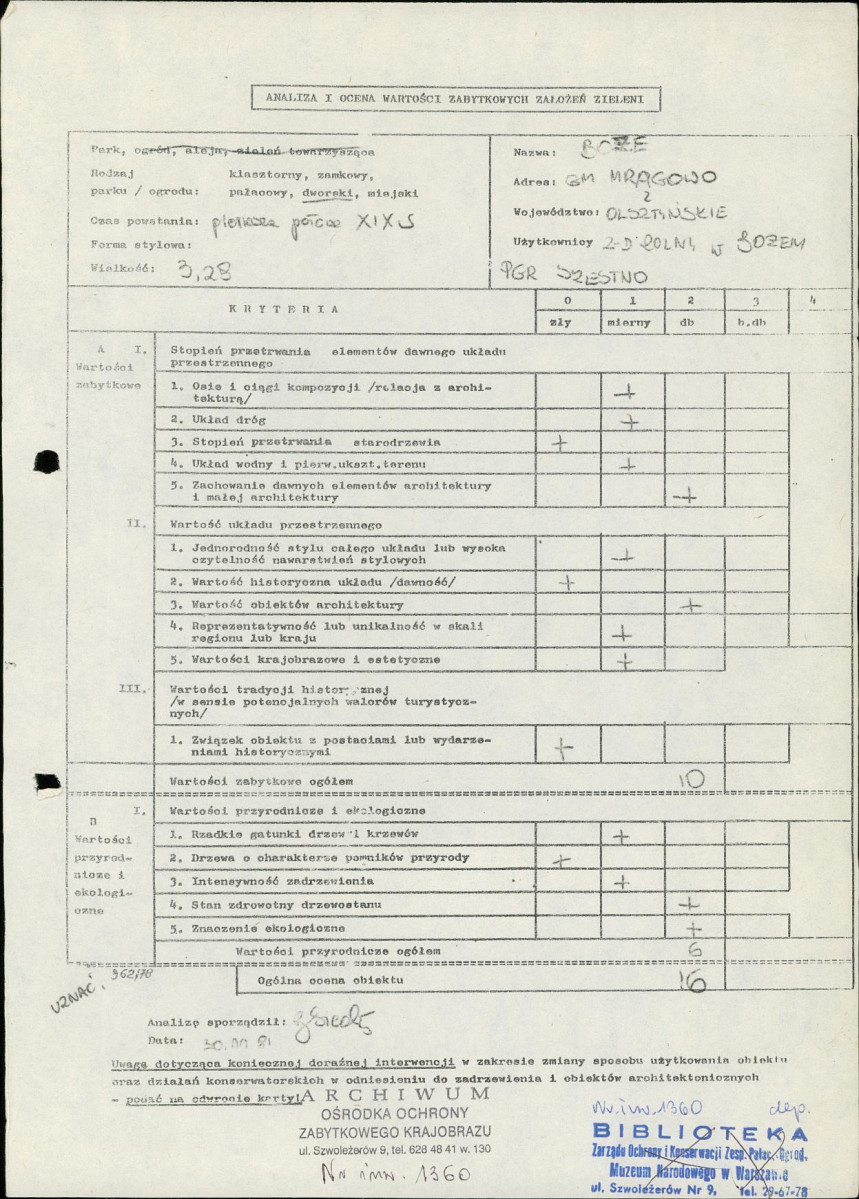 ANALIZA I OCENA WARTOŚCI ZABYTKOWYCH ZAŁOŻEŃ ZIELENI
Park, ogród, aleja, zieleń towarzysząca
Rodzaj klasztorny, zamkowy,
parku / ogrodu: pałacowy, dworski, miejski
Czas powstania: pierwsza połowa XIX
Forma stylowa:
Wielkość: 3,28
Nazwa: BOŻE
Adres: GM MRĄGOWO
Województwo: OLSZTYŃSKIE
Użytkownicy Z-D ROLNY w BOŻEM
PGR SZESTNO
KRYTERIA 0 1 2 3 4
zły mierny db b.db
A I. Stopień przetrwania elementów dawnego układu
Wartości przestrzennego
zabytkowe 1. Osie i ciągi kompozycji /relacja z archi-
tekturą/ +
2. Układ dróg +
3. Stopień przetrwania starodrzewia +
4. Układ wodny i pierw.ukszt.terenu +
5. Zachowanie dawnych elementów architektury
i małej architektury +
II. Wartość układu przestrzennego
1. Jednorodność stylu całego układu lub wysoka
czytelność nawarstwień stylowych +
2. Wartość historyczna układu /dawność/ +
3. Wartość obiektów architektury +
4. Reprezentatywność lub unikalność w skali
regionu lub kraju +
5. Wartości krajobrazowe i estetyczne +
III. Wartości tradycji historycznej
/w sensie potencjalnych walorów turystycz-
nych/
1. Związek obiektu z postaciami lub wydarze-
niami historycznymi +
Wartości zabytkowe ogółem 10
B I. Wartości przyrodnicze i ekologiczne
Wartości 1. Rzadkie gatunki drzew i krzewów +
przyrod- 2. Drzewa o charakterze pomników przyrody +
nicze i 3. Intensywność zadrzewienia +
ekologi- 4. Stan zdrowotny drzewostanu +
czne 5. Znaczenie ekologiczne +
Wartości przyrodnicze ogółem 6
UZNAĆ! 362/78
Ogólna ocena obiektu 16
Analizę sporządził:
Data: 30.
Uwagę dotyczącą koniecznej doraźnej interwencji w zakresie zmiany sposobu użytkowania obiektu
oraz działań konserwatorskich w odniesieniu do zadrzewienia i obiektów architektonicznych
- podać na odwrocie karty!
ARCHIWUM
OŚRODKA OCHRONY
ZABYTKOWEGO KRAJOBRAZU
ul. Szwoleżerów 9, tel. 628 48 41 w. 130
Nr inw. 1360
Nr.inw.1360 dep.
BIBLIOTEKA
Zarządu Ochrony i Konserwacji Zesp. Pałac.-Ogrod.
Muzeum Narodowego w Warszawie
ul. Szwoleżerów Nr 9, tel. 29-67-78